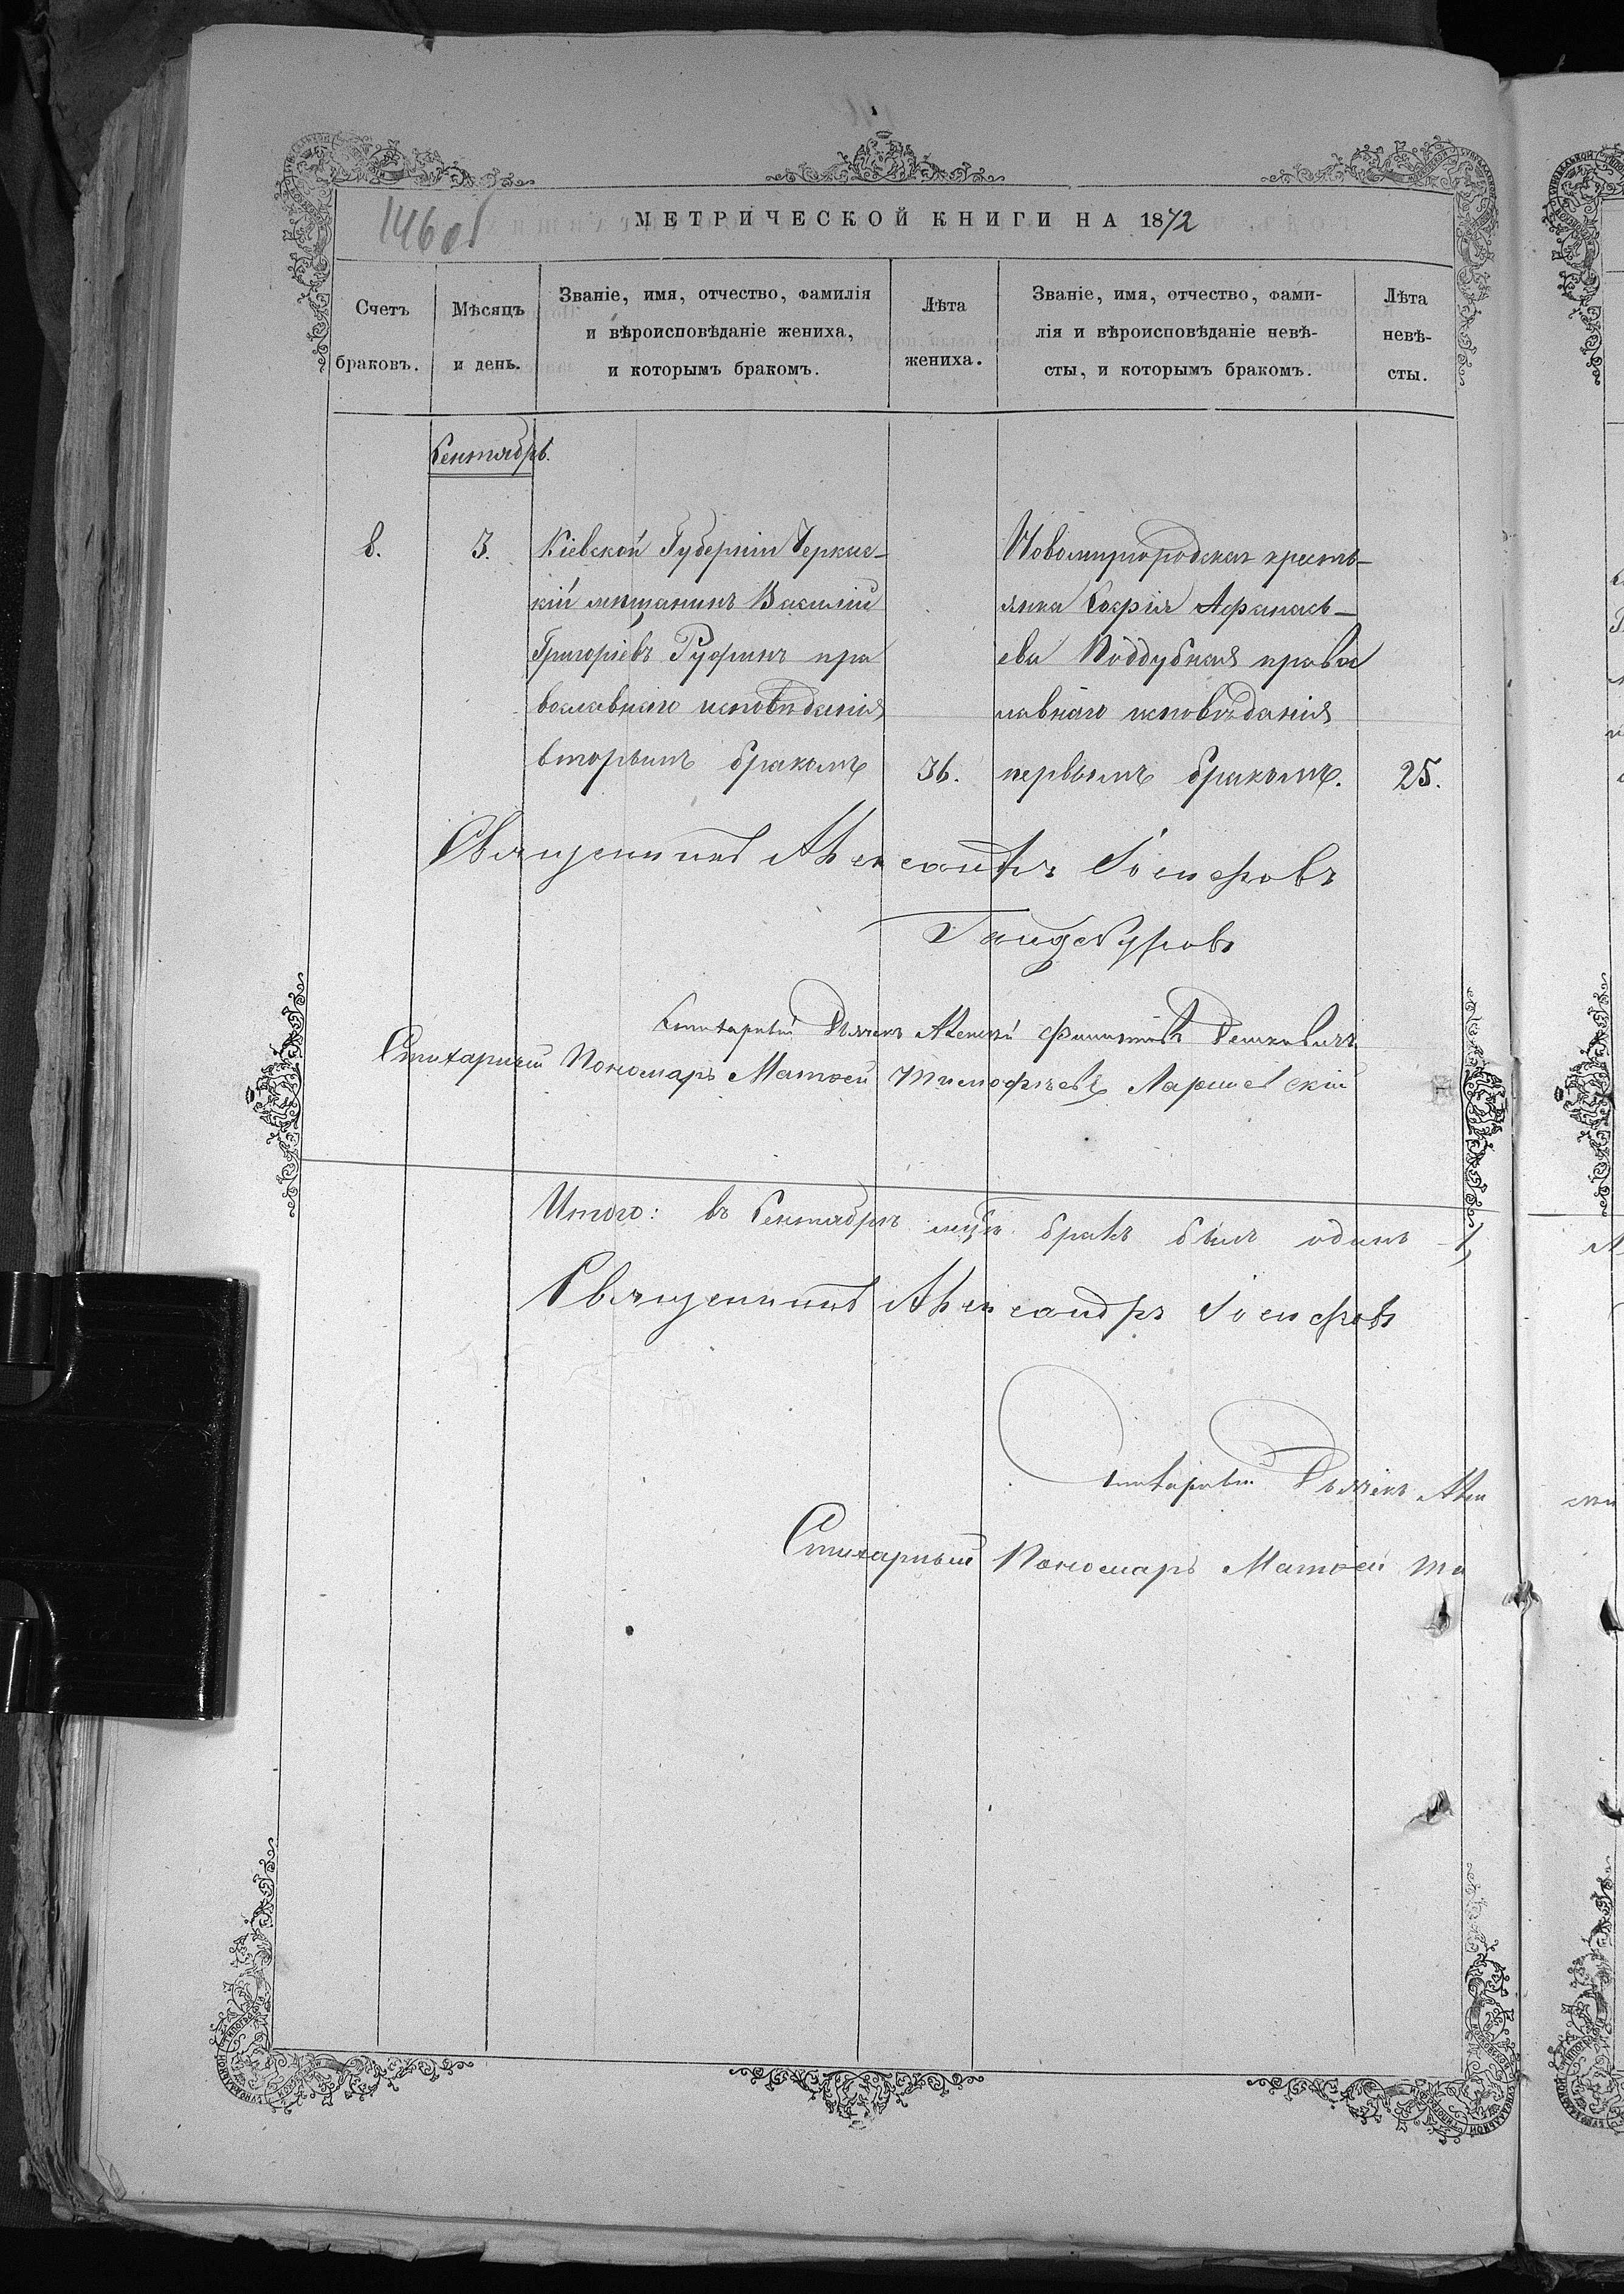 146об
МЕТРИЧЕСКОЙ КНИГИ НА 1872
Счетъ
браковъ.
Мѣсяцъ
и день.
Званіе, имя, отчество, фамилія
и вѣроисповѣданіе жениха,
и которымъ бракомъ.
Лѣта
жениха.
Званіе, имя, отчество, фами-
лія и вѣроисповѣданіе невѣ-
сты, и которымъ бракомъ.
Лѣта
невѣ-
сты.
Сентябрь.
8.
3.
Кіевской Губерніи Черкас-
кій мѣщанинъ Василій
Григоріевъ Руфинъ пра
вославнаго исповѣданія
вторымъ бракомъ
36.
Новомиргородская кресть-
янка Софія Афанась-
ева Поддубная правос
лавнаго исповѣданія
первымъ бракомъ.
25.
Священникъ Александръ Іосифовъ
Гайдебуровъ
Стихарный Дьячекъ Алексѣй
Стихарный Пономарь Матѳей Тимофѣевъ Ларшевскій
Итого: въ Сентябрѣ мцѣ бракъ былъ одинъ 1,
Священникъ Александръ Іосифовъ
Стихарный Дьячекъ Але
Стихарный Пономарь Матѳей Ти